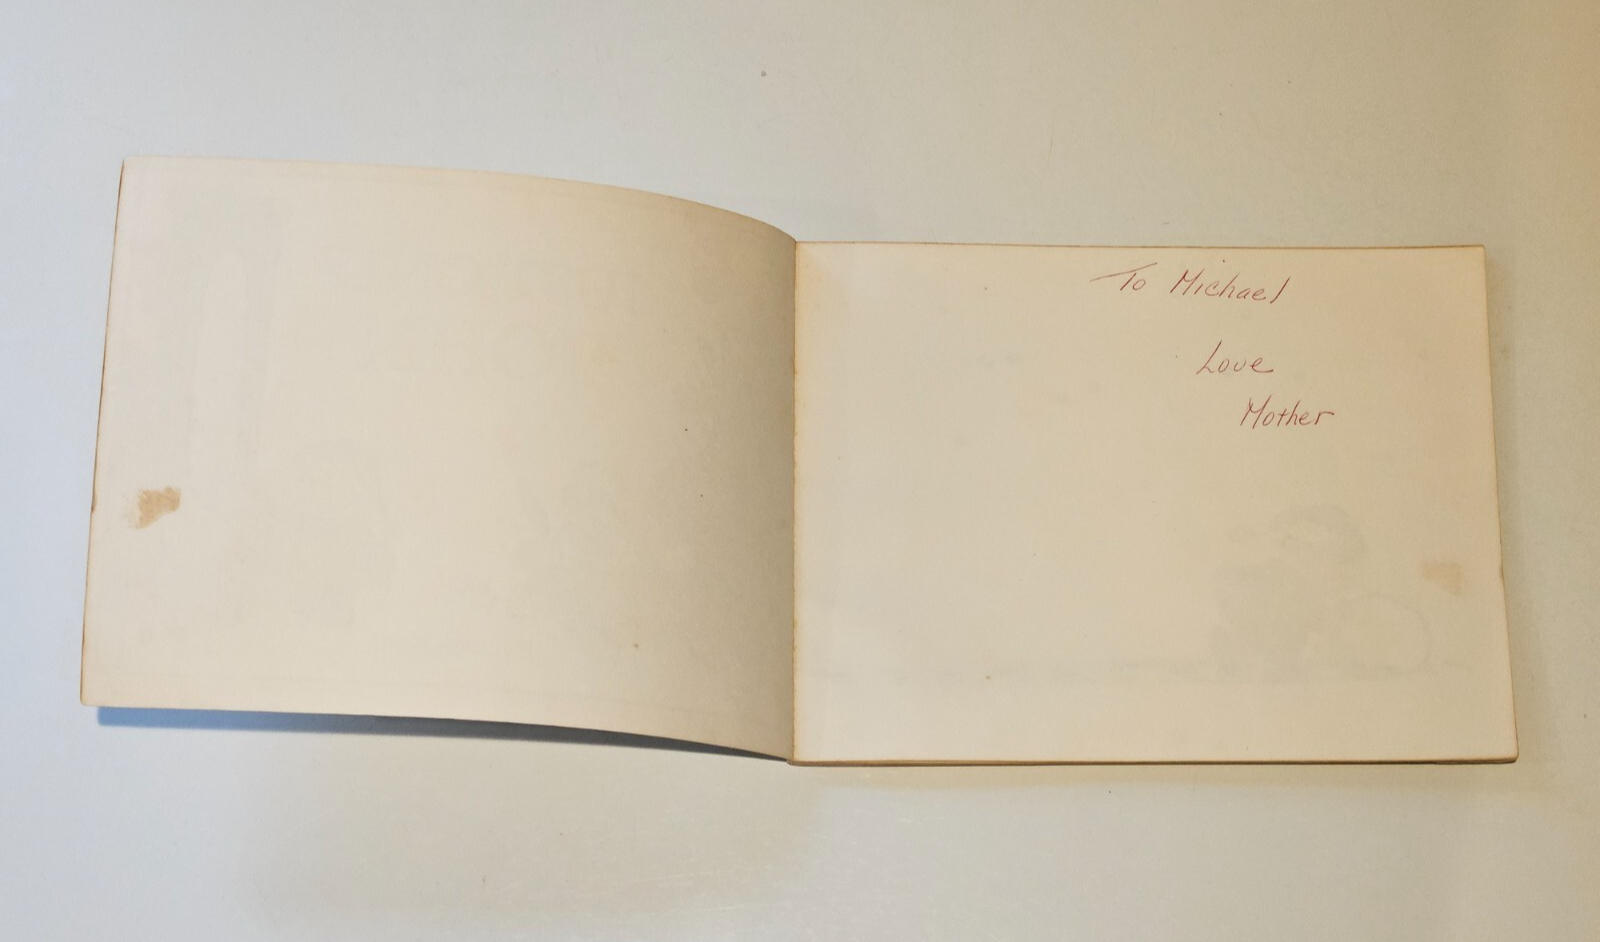 To Michael
Love
Mother